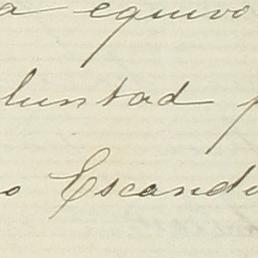 a equivo
luntad p
o Escand